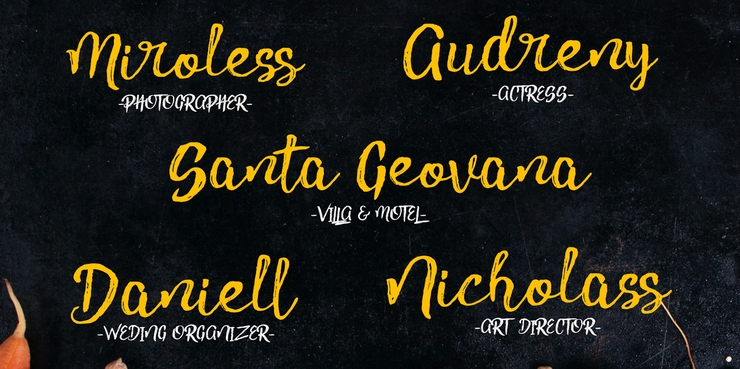 Miroless
-PHOTOGRAPHER-
Audreny
-ACTRESS-
Santa Geovana
-VILLA & MOTEL-
Daniell
-WEDING ORGANIZER-
Nicholass
-ART DIRECTOR-